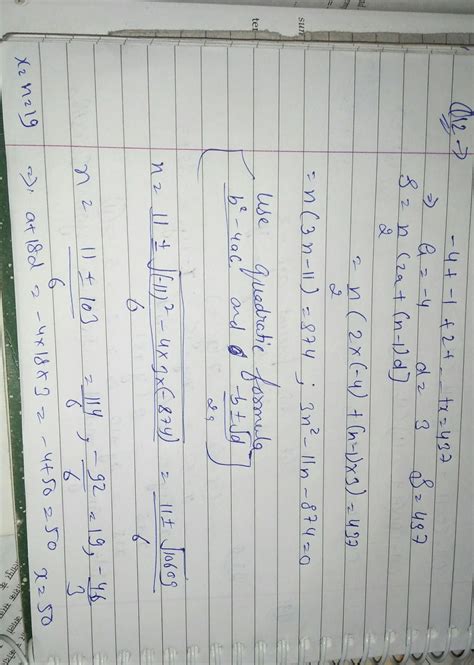 Q12 →
-4 + -1 + 2 + ... + x = 437
⇒ a = -4 d = 3 S = 437
S = n/2 (2a + (n-1)d]
= n/2 (2x(-4) + (n-1)x3) = 437
= n(3n-11) = 874 ; 3n² - 11n - 874 = 0
Use quadratic formula
b² - 4ac and -b ± √d / 2a
n = 11 ± √(-11)² - 4x3x(-874) / 6 = 11 ± √10609 / 6
n = 11 ± 103 / 6 = 114/6 , -92/6 = 19, -46/3
x = n = 19 ⇒ a + 18d = -4 x 18 x 3 = -4 + 50 = 50 x = 50